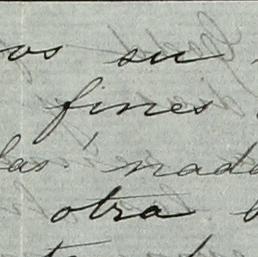 os su
fines
las nada
otra